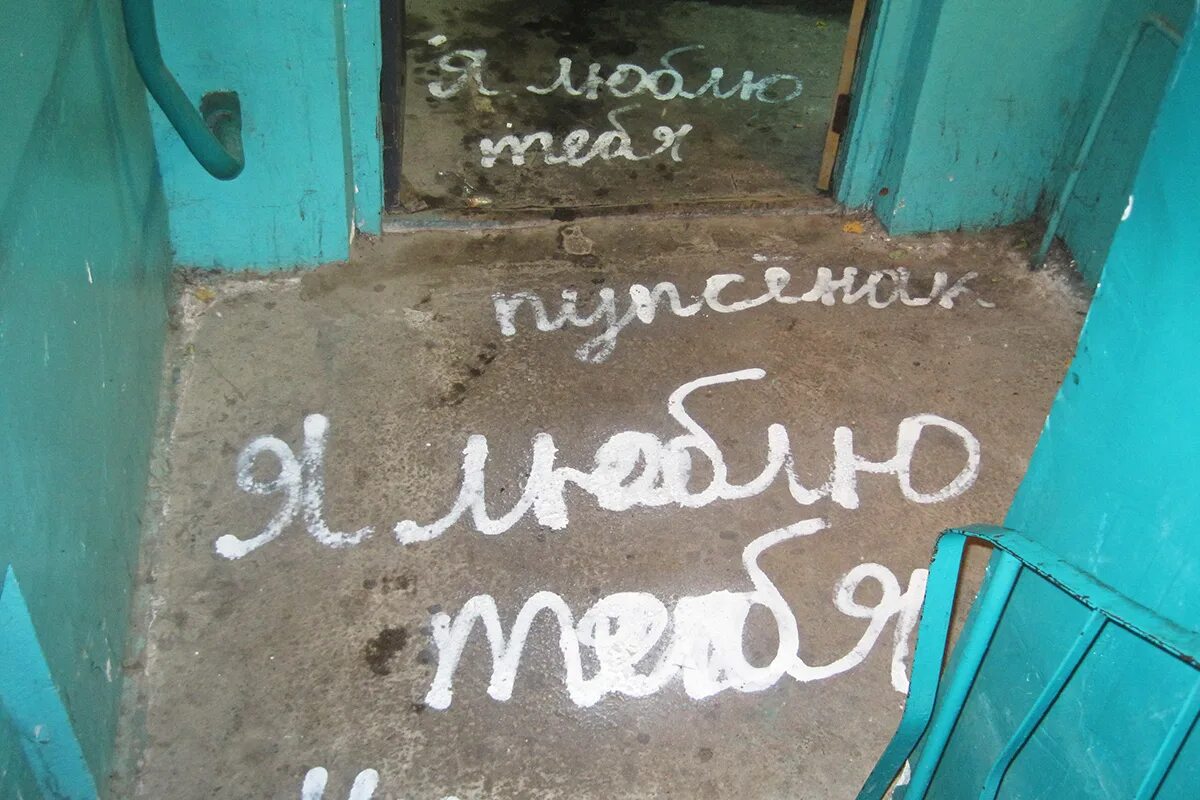 Я люблю
тебя
пупсёнак
Я люблю
тебя